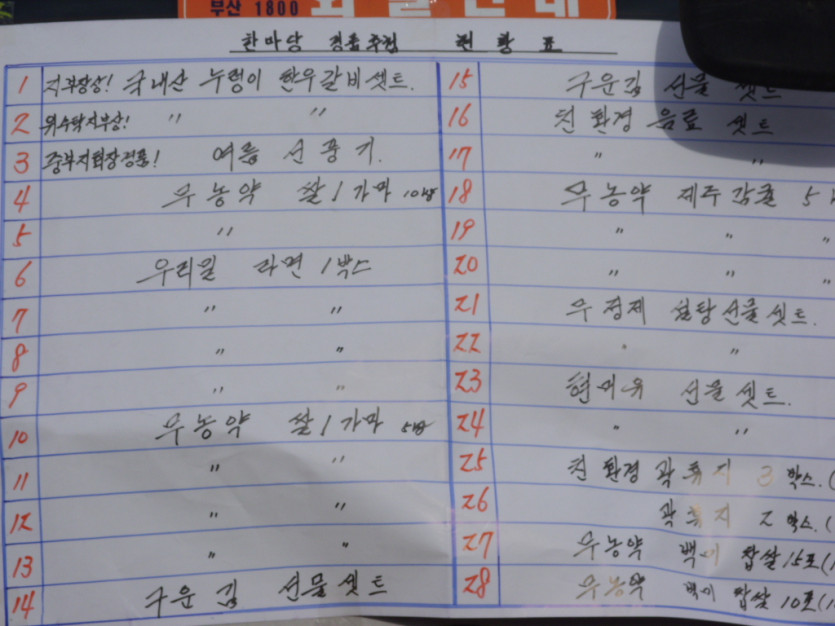 부산 1800
한마당 경품추첨 현황표
1 지부장상! 국내산 누렁이 한우갈비셋트.
2 위수탁지부상! " "
3 중부지회장경품! 여름 선풍기.
4 무농약 쌀 1가마
5 "
6 우리밀 라면 1박스
7 " "
8 " "
9 " "
10 무농약 쌀 1가마
11 " "
12 " "
13 " "
14 구운김 선물셋트
15 구운김 선물 셋트
16 친환경 음료 셋트
17 " "
18 무농약 제주감귤 5
19 " " "
20 " " "
21 무정제 설탕선물셋트.
22 " "
23 현미유 선물셋트.
24 " "
25 친환경 곽휴지 3박스.(
26 곽휴지 2박스.(
27 무농약 백미 찹쌀 15포(1
28 무농약 백미 찹쌀 10포(1